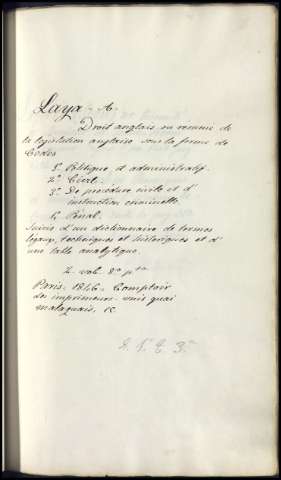 Laya - A.
Droit anglais ou resumé de
la législation anglaise sous la forme de
Codes
1º Politique et administratif.
2º Civil.
3º De procédure civile et d'
instruction criminelle
4. Pénal.
Suivis d'un dictionnaire de termes
légaux, techniques et historiques et d'
une table analytique.
2. vol. 8º
Paris. 1846. Comptoir
des imprimeurs-unis quai
malaquais, 15.
E. 1. T. 3.